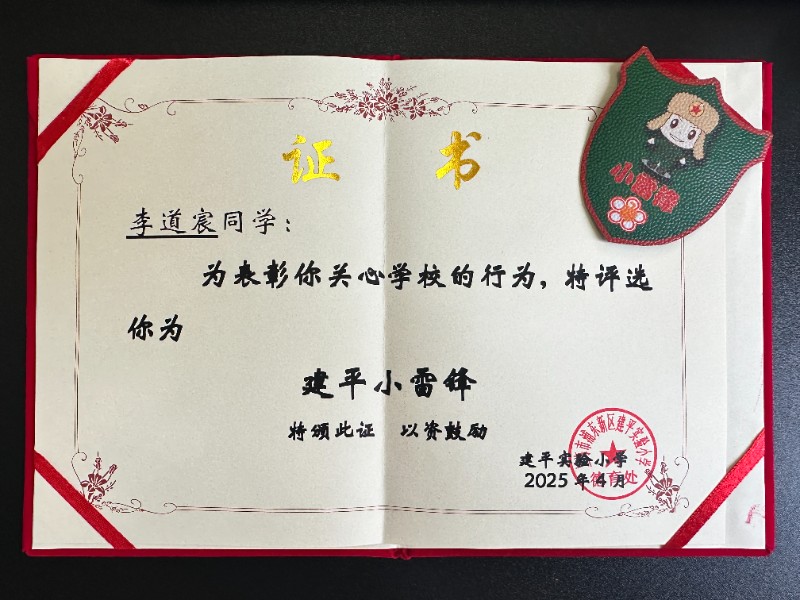 证 书
小雷锋
李道宸同学：
为表彰你关心学校的行为，特评选
你为
建平小雷锋
特颁此证 以资鼓励
建平实验小学
2025 年 4 月
市浦东新区建平实验小学
德育处